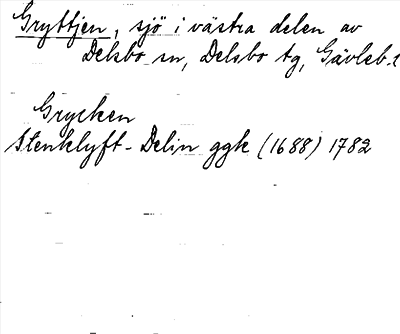 Gryttjen, sjö i västra delen av
Delsbo sn, Delsbo tg, Gävleb. l
Grycken
Stenklyft-Delin ggk (1688) 1782